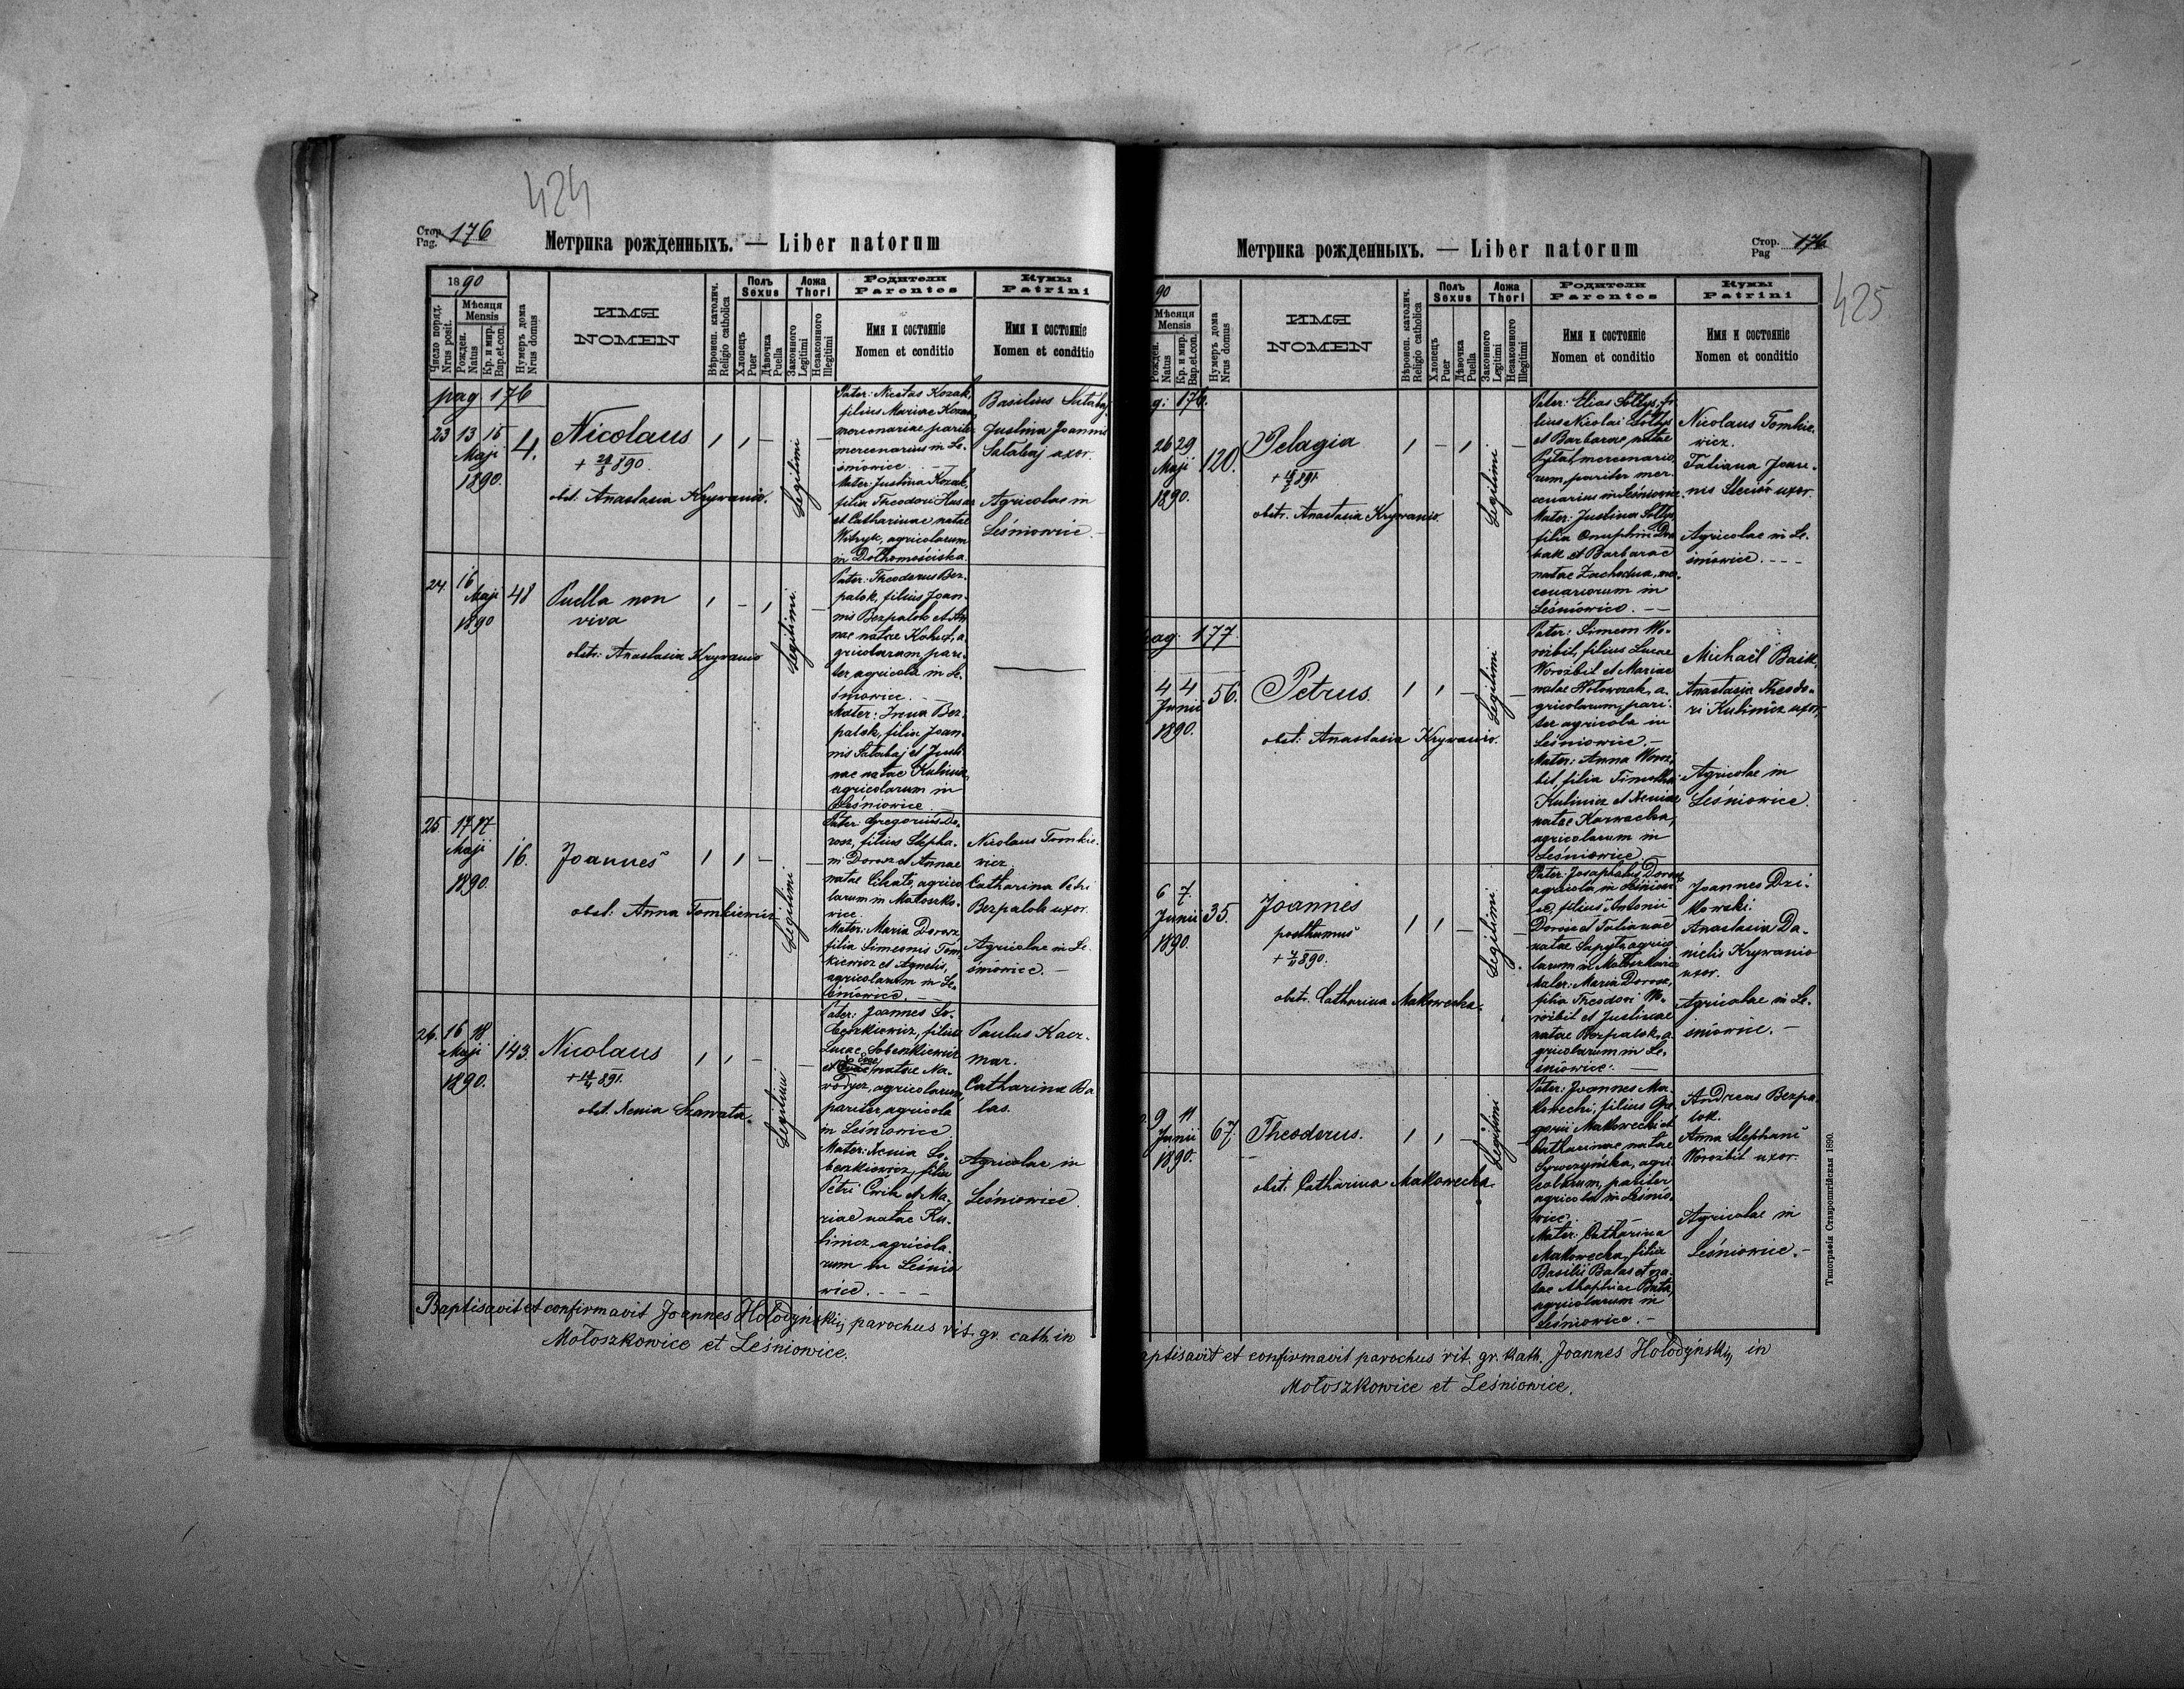 424
Стор. Pag. 176
Метрика рожденныхъ. — Liber natorum
1890
Число поряд. Nrus posit.
Мѣсяця Mensis
Рожден. Natus
Кр. и мир. Bap. et con.
Нумеръ дома Nrus domus
ИМЯ
NOMEN
Вѣроисп. католич. Religio catholica
Полъ Sexus
Хлопецъ Puer
Дѣвочка Puella
Ложа Thori
Законного Legitimi
Незаконного Illegitimi
Родители
Parentes
Имя и состояніе
Nomen et conditio
Кумы
Patrini
Имя и состояніе
Nomen et conditio
pag 176
23 13 15 Maji 1890. 4.
Nicolaus
obst. Anastasia Krywanio.
Legitimi
Pater: Nicetas Kozak,
filius Mariae Kozak
mercenariae pariter
mercenarius in Le-
śniowice. —
Mater: Justina Kozak,
filia Theodori Husar
et Catharinae natae
Witryk, agricolarum
in Dołhomościska
Basilius Satabaj
Justina Joannis
Satabaj uxor.
Agricolae in
Leśniowice. —
24. 16 Maji 1890 48
Puella non
viva
obstr: Anastasia Krywanio
Legitimi.
Pater: Theodorus Bez-
palok, filius Joan-
nis Bezpalok et An
nae natae Kohut, a-
gricolarum, pari-
ter agricola in Le-
śniowice. —
Mater: Irena Bez-
palok, filia Joan-
nis Satabaj et Justi
nae natae Kulinicz
agricolarum in
Leśniowice. —
25 17 17 Maji 1890. 16.
Joannes
obst: Anna Tomkiewicz
Legitimi
Pater: Gregorius Do-
rosz, filius Stepha-
ni Dorosz et Annae
natae agrico
larum in Małoszko-
wice.
Mater: Maria Dorosz
filia Simeonis Tom
kiewicz et Agnetis,
agricolarum in Le-
śniowice. —
Nicolaus Tomkie-
wicz
Catharina Petri
Bezpalok uxor.
Agricolae in Le-
śniowice. —
26. 16 18 Maji 1890. 143.
Nicolaus
obst. Xenia Szawata.
Legitimi
Pater: Joannes So-
benkiewicz, filius
Lucae Sobenkiewicz
et natae Na-
wodycz, agricolarum,
pariter agricola
in Leśniowice
Mater: Xenia So-
benkiewicz, filia
Petri Ćwik et Ma-
riae natae Ku-
linicz, agricola-
rum in Leśnio
wice. — — —
Paulus Kacz-
mar.
Catharina Ba
las.
Agricolae in
Leśniowice.
Baptisavit et confirmavit Joannes Hołodyńskij parochus rit. gr. cath in
Mołoszkowice et Leśniowice.
Метрика рожденныхъ. — Liber natorum
Стор. Pag 176
425
90
Мѣсяця Mensis
Рожден. Natus
Кр. и мир. Bap. et con.
Нумеръ дома Nrus domus
ИМЯ
NOMEN
Вѣроисп. католич. Religio catholica
Полъ Sexus
Хлопецъ Puer
Дѣвочка Puella
Ложа Thori
Законного Legitimi
Незаконного Illegitimi
Родители
Parentes
Имя и состояніе
Nomen et conditio
Кумы
Patrini
Имя и состояніе
Nomen et conditio
g: 176.
26 29 Maji 1890. 120.
Pelagia
obstr. Anastasia Krywanio.
Legitimi
Pater: Elias Sołtys, fi
lius Nicolai Sołtys
et Barbarae natae
Pytat, mercenario
rum, pariter mer-
cenarius in Leśniowice.
Mater: Justina Sołtys
filia Onuphrii
et Barbarae
natae me
cenariorum in
Leśniowice. —
Nicolaus Tomkie-
wicz.
Tatiana Joan-
nis Steciów uxor.
Agricolae in Le-
śniowice. - - -
pag. 177.
4 4 Junii 1890. 56.
Petrus.
obst: Anastasia Krywanio.
Legitimi
Pater: Simeon Wo-
rożbit, filius Lucae
Worożbit et Mariae
natae Hołowczak, a-
gricolarum, pari-
ter agricola in
Leśniowice. —
Mater: Anna Woroż-
bit, filia Timothei
Kulinicz et Xeniae
natae Karwacka,
agricolarum in
Leśniowice —
Michaël Basik.
Anastasia Theodo-
ri Kulinicz uxor,
Agricolae in
Leśniowice.
6 7 Junii 1890. 35.
Joannes
posthumus
obstr. Catharina Makowecka.
Legitimi.
Pater: Josaphatus Dorosz
agricola in Leśniowi-
ce, filius Antonii
Dorosz et Tatianae
natae Sapyta, agrico
larum in Małoszkowice
Mater: Maria Dorosz,
filia Theodori Wo-
rożbit et Justinae
natae Bezpalok, a-
gricolarum in Le-
śniowice. —
Joannes Dzi-
kowski.
Anastasia Da-
nielis Krywanio
uxor.
Agricolae in Le-
śniowice. —
9 11 Junii 1890. 67.
Theodorus.
obst: Catharina Makowecka.
Legitimi
Pater: Joannes Ma-
kowecki, filius Gre
gorii Makowecki et
Catharinae natae
agri-
colarum, pariter
agricola in Leśnio-
wice. —
Mater: Catharina
Makowecka, filia
Basilii Balas et
agricolarum in
Leśniowice. —
Andreas Bezpa-
lok.
Anna Stephani
Worożbit uxor.
Agricolae in
Leśniowice. —
aptisavit et confirmavit parochus rit. gr. kath. Joannes Hołodyńskij in
Mołoszkowice et Leśniowice.
Типографія Ставропигійская 1890.